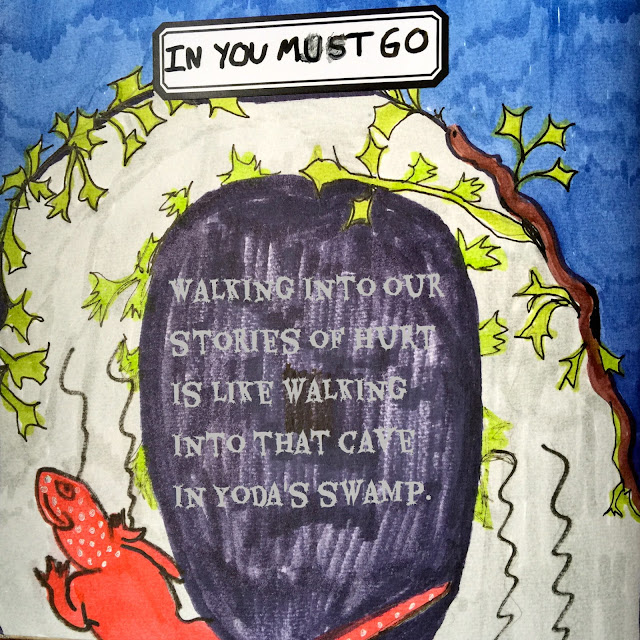 IN YOU MUST GO
WALKING INTO OUR
STORIES OF HURT
IS LIKE WALKING
INTO THAT CAVE
IN YODA'S SWAMP.